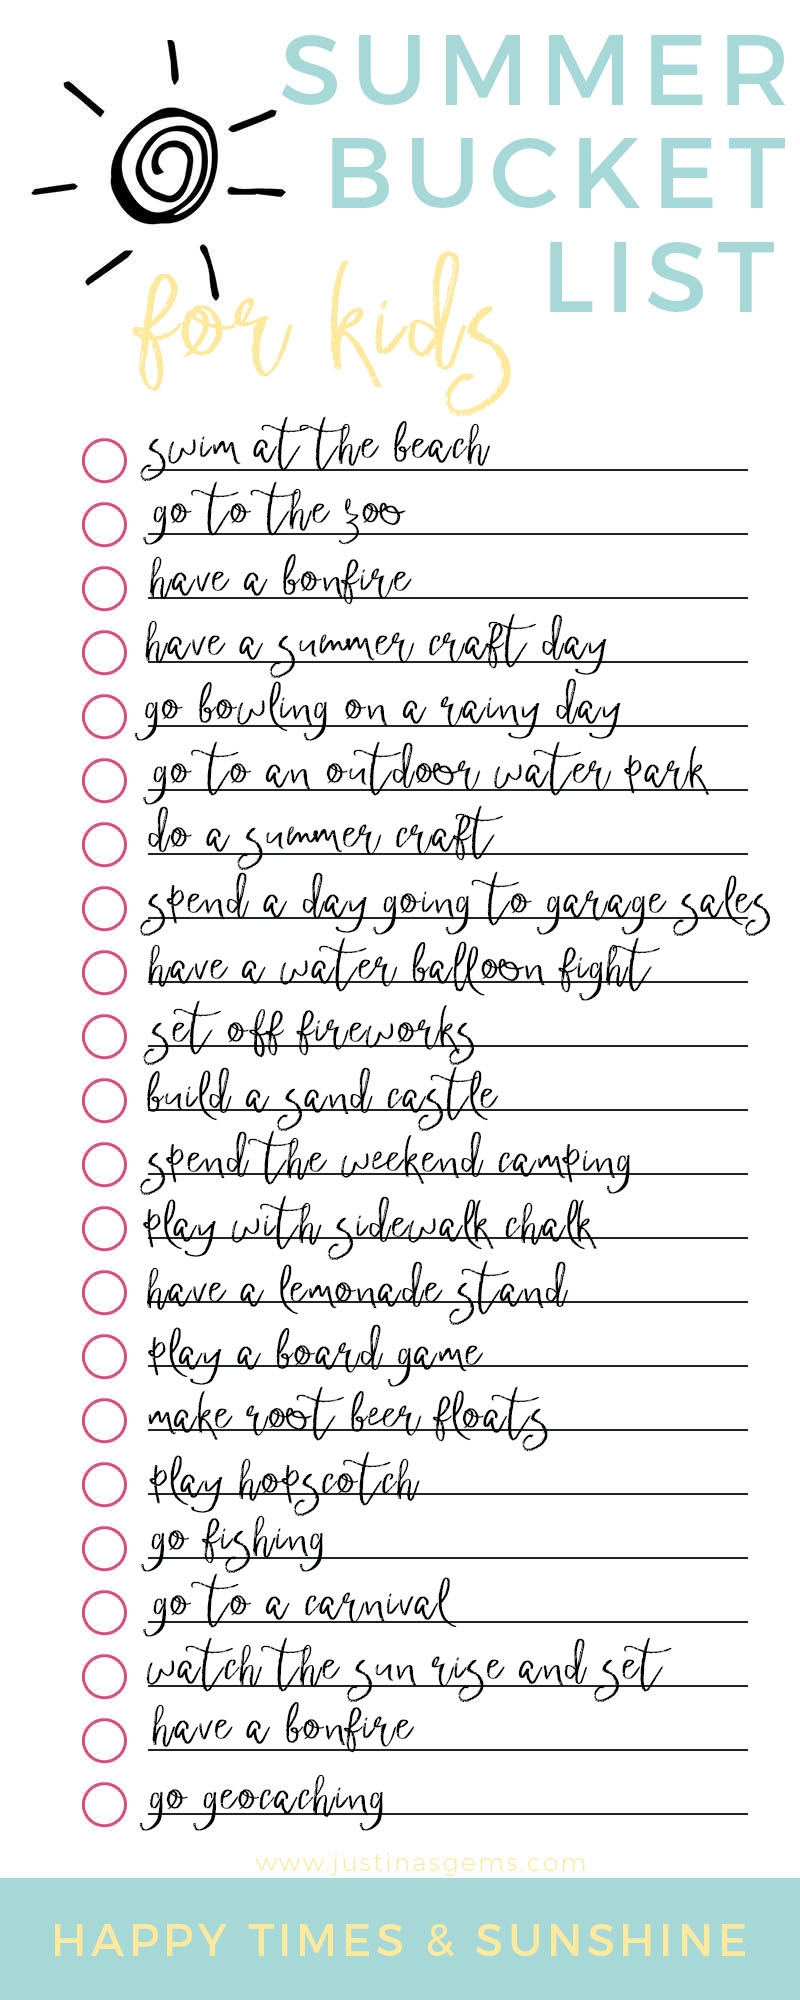 SUMMER
BUCKET
LIST
for kids
swim at the beach
go to the zoo
have a bonfire
have a summer craft day
go bowling on a rainy day
go to an outdoor water park
do a summer craft
spend a day going to garage sales
have a water balloon fight
set off fireworks
build a sand castle
spend the weekend camping
play with sidewalk chalk
have a lemonade stand
play a board game
make root beer floats
play hopscotch
go fishing
go to a carnival
watch the sun rise and set
have a bonfire
go geocaching
www.justinasgems.com
HAPPY TIMES & SUNSHINE